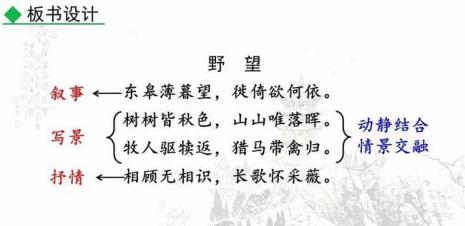 板书设计
野 望
叙事 东皋薄暮望，徙倚欲何依。
写景 树树皆秋色，山山唯落晖。
牧人驱犊返，猎马带禽归。
动静结合
情景交融
抒情 相顾无相识，长歌怀采薇。